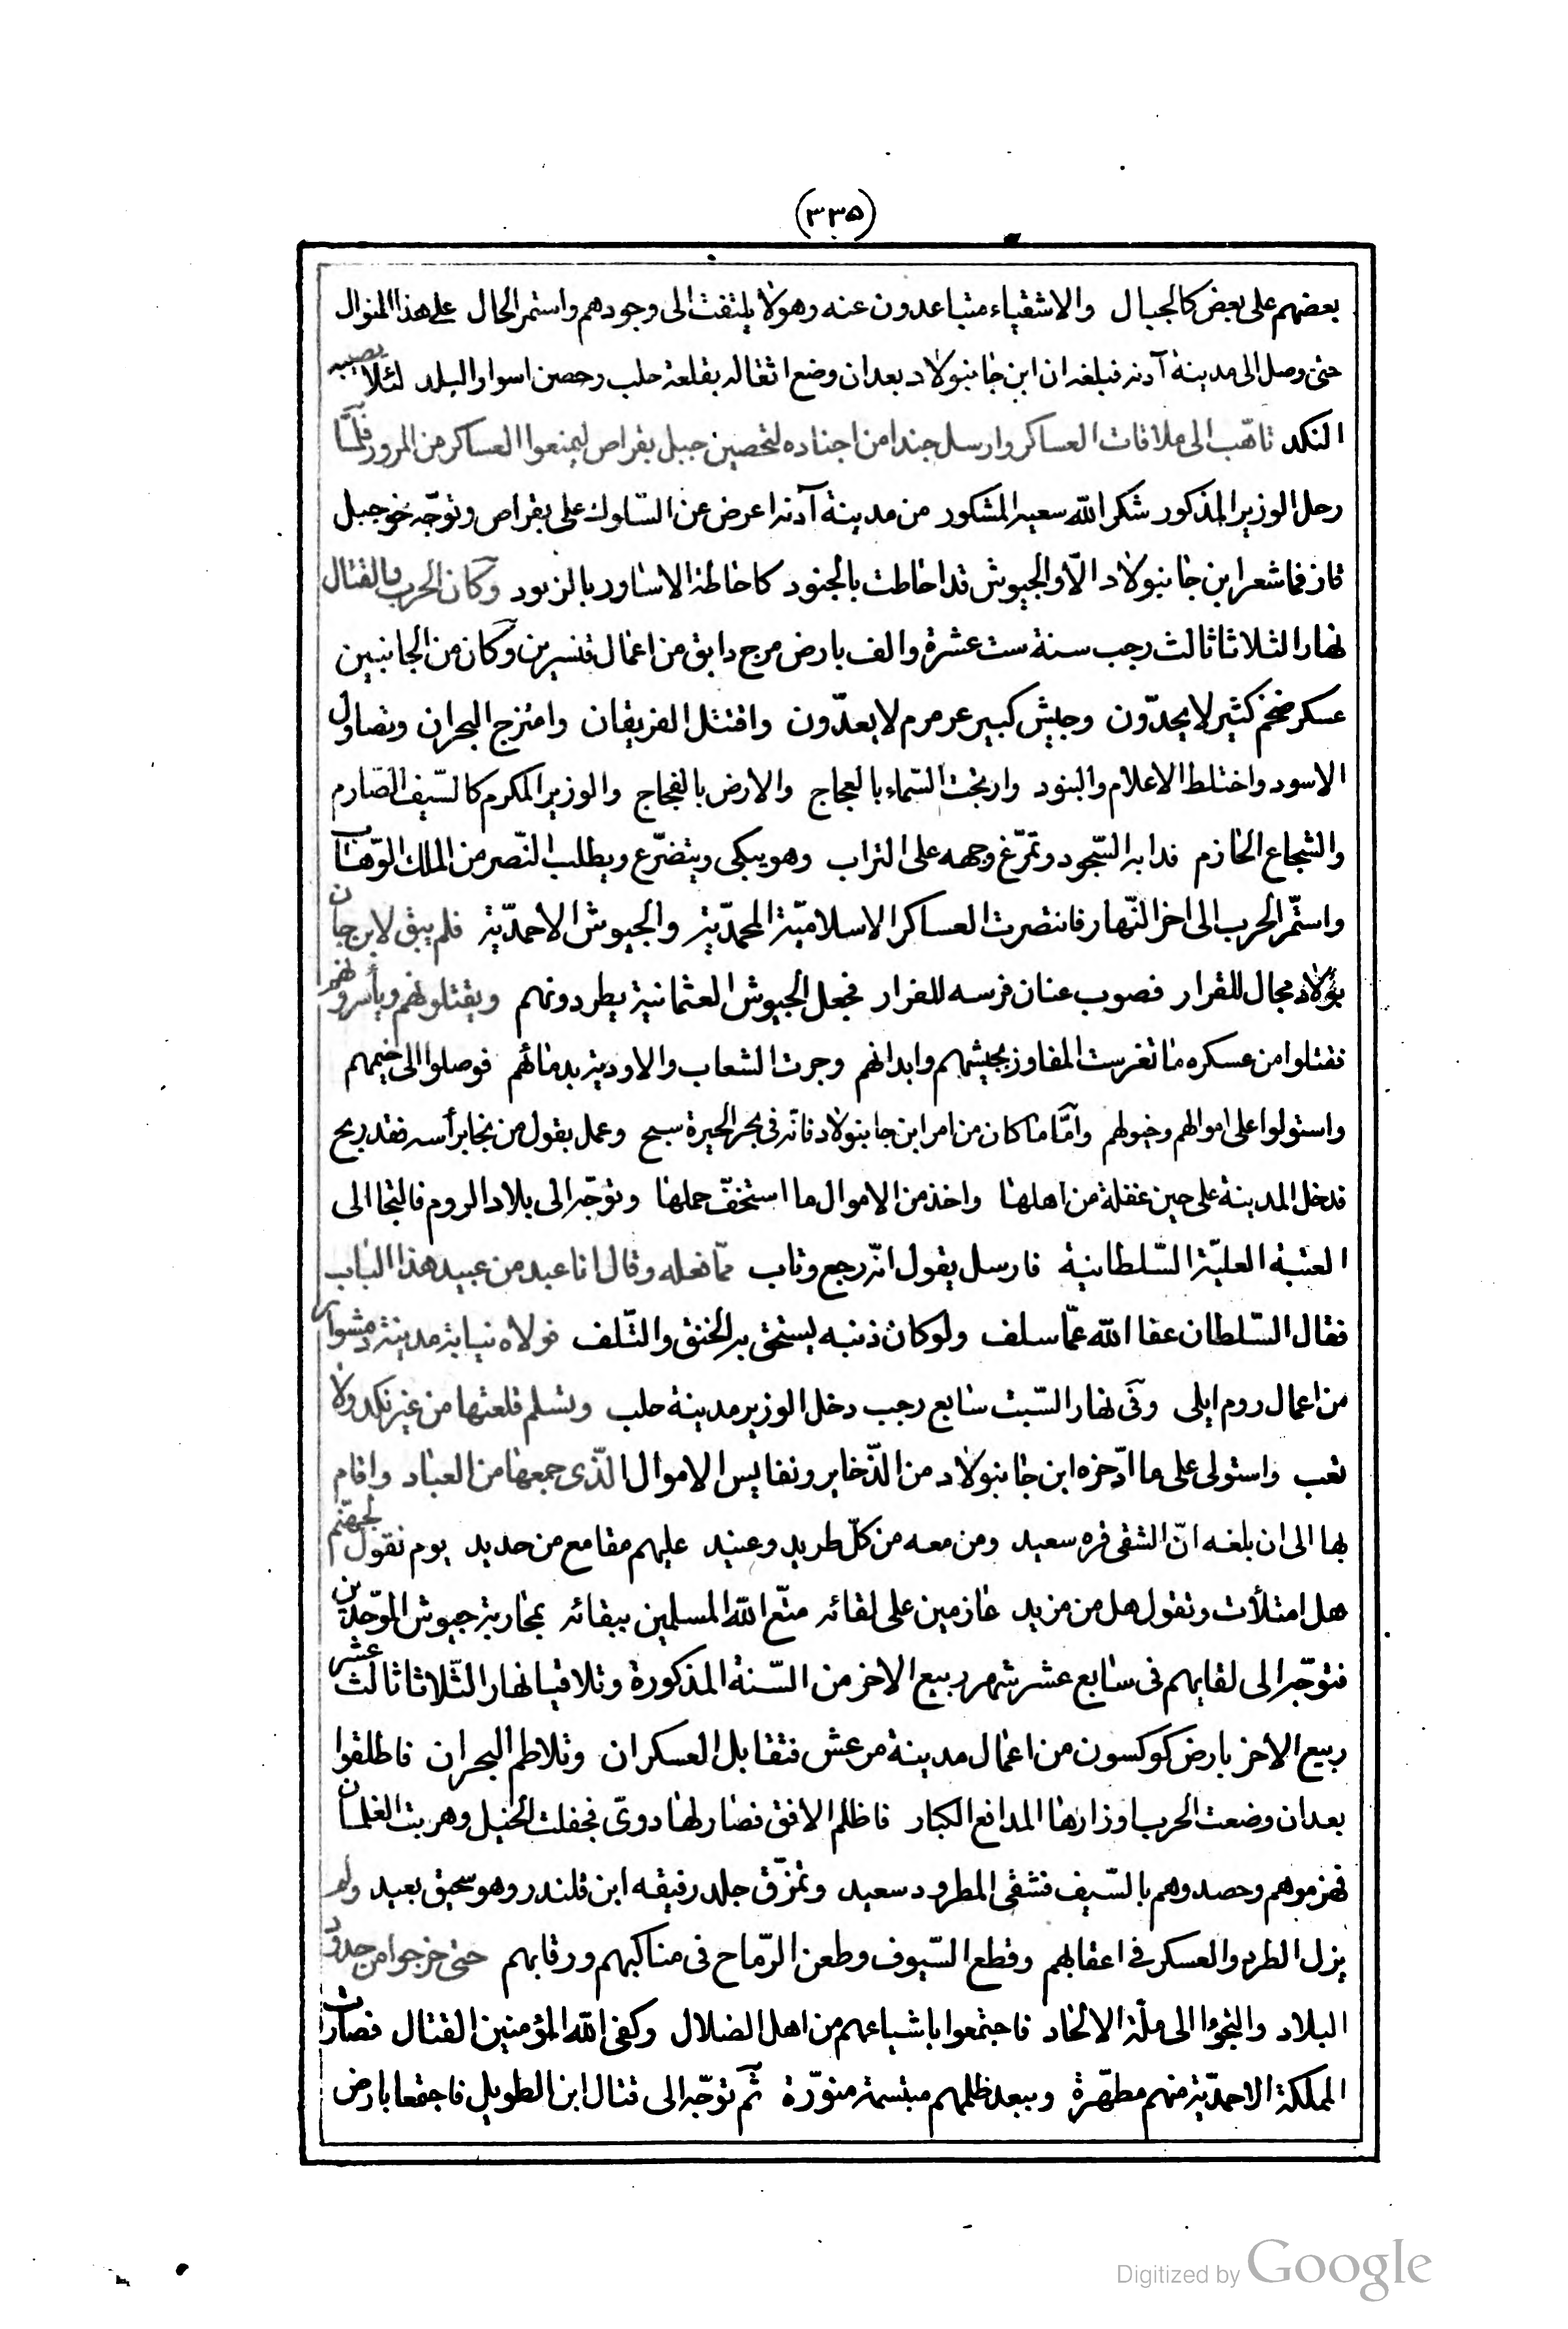 (٣٣٥)
بعضهم على بعض كالجبال والاشقياء متباعدون عنه وهو لا يلتفت الى وجودهم واستمر الحال على هذا المنوال
حتى وصل الى مدينة آدنه فبلغه ان ابن جانبولاد بعد ان وضع اثقاله بقلعة حلب وحصن اسوار البلد لئلا يصيبه
النكد تاهّب الى ملاقات العساكر وارسل جندا من اجناده لتحصين جبل بقراص ليمنعوا العساكر من المرور فلمّا
رحل الوزير المذكور شكر الله سعيه المشكور من مدينة آدنه اعرض عن السّلوك على بقراص وتوجّه نحو جبل
قاز فما شعر ابن جانبولاد الّا والجيوش قد احاطت بالجنود كاحاطة الاساور بالزنود وكان الحرب والقتال
نهار الثلاثا ثالث رجب سنة ست عشرة والف بارض مرج دابق من اعمال قنسرين وكان من الجانبين
عسكر ضخم كثير لا يحدّون وجيش كبير عرمرم لا يعدّون واقتتل الفريقان وامتزج البحران وتصاول
الاسود واختلط الاعلام والبنود وارتجت السّماء بالعجاج والارض بالفجاج والوزير المكرم كالسّيف الصّارم
والشجاع الحازم فدابه السّجود وتمرّغ وجهه على التراب وهو يبكى ويتضرّع ويطلب النّصر من الملك الوهّاب
واستمّر الحرب الى اخر النّهار فانتصرت العساكر الاسلاميّة المحمديّة والجيوش الاحمديّة فلم يبق لابن جان
بولاد مجال للقرار فصوب عنان فرسه للفرار فجعل الجيوش العثمانية يطردونهم ويقتلونهم ويأسرونهم
فقتلوا من عسكره ما تغرست المفاوز بجيشهم وابدانهم وجرت الشعاب والاودية بدمائهم فوصلوا الى خيمهم
واستولوا على اموالهم وخيولهم وامّا ما كان من امر ابن جانبولاد فانّه فى بحر الحيرة سبح وعمل بقول من نجا برأسه فقد ربح
فدخل المدينة على حين غفلة من اهلها واخذ من الاموال ما استخفّ حملها وتوجّه الى بلاد الروم فالتجا الى
العتبة العليّة السّلطانية فارسل يقول انّه رجع وتاب ممّا فعله وقال انا عبد من عبيد هذا الباب
فقال السّلطان عفا الله عمّا سلف ولو كان ذنبه يستحق به الخنق والتّلف فولاه نيابة مدينة دمشوار
من اعمال روم ايلى وفى نهار السّبت سابع رجب دخل الوزير مدينة حلب وتسلم قلعتها من غير نكد ولا
تعب واستولى على ما ادّخره ابن جانبولاد من الذّخاير ونفايس الاموال الذّى جمعها من العباد واقام
بها الى ان بلغه انّ الشقى قره سعيد ومن معه من كلّ طريد وعنيد عليهم مقامع من حديد يوم نقول لجهنّم
هل امتلأت وتقول هل من مزيد عازمين على لقائه متّع الله المسلمين ببقائه بمحاربة جيوش الموّحدين
فتوجّه الى لقايهم فى سابع عشر شهر ربيع الاخر من السّنة المذكورة وتلاقيا نهار الثّلاثا ثالث عشر
ربيع الاخر بارض كوكسون من اعمال مدينة مرعش فتقابل العسكران وتلاطم البحران فاطلقوا
بعد ان وضعت الحرب اوزارها المدافع الكبار فاظلم الافق فصار لها دوىّ فجفلت الخيل وهربت الغلمان
فهزموهم وحصدوهم بالسّيف فشقى المطرود سعيد وتمزّق جلد رفيقه ابن قلندر وهو سحيق بعيد ولم
يزل الطرد والعسكر فى اعقابهم وقطع السّيوف وطعن الرّماح فى مناكبهم ورقابهم حتى خرجوا من حدود
البلاد والتجؤا الى ملّة الالحاد فاجتمعوا باشياعهم من اهل الضلال وكفى الله المؤمنين القتال فصارت
المملكة الاحمديّة منهم مطهّرة وببعد ظلمهم مبتسمة منوّرة ثمّ توجّه الى قتال ابن الطويل فاجتمعا بارض
Digitized by Google